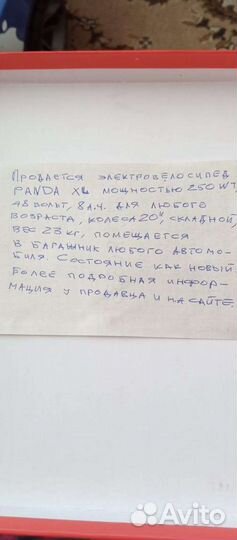 Продается электровелосипед
PANDA XL мощностью 250 WT,
48 вольт, 8 а.ч. для любого
возраста, колеса 20", складной,
вес 23 кг, помещается
в багажник любого автомо-
биля. Состояние как новый
Более подробная инфор-
мация у продавца и на сайте.
Avito